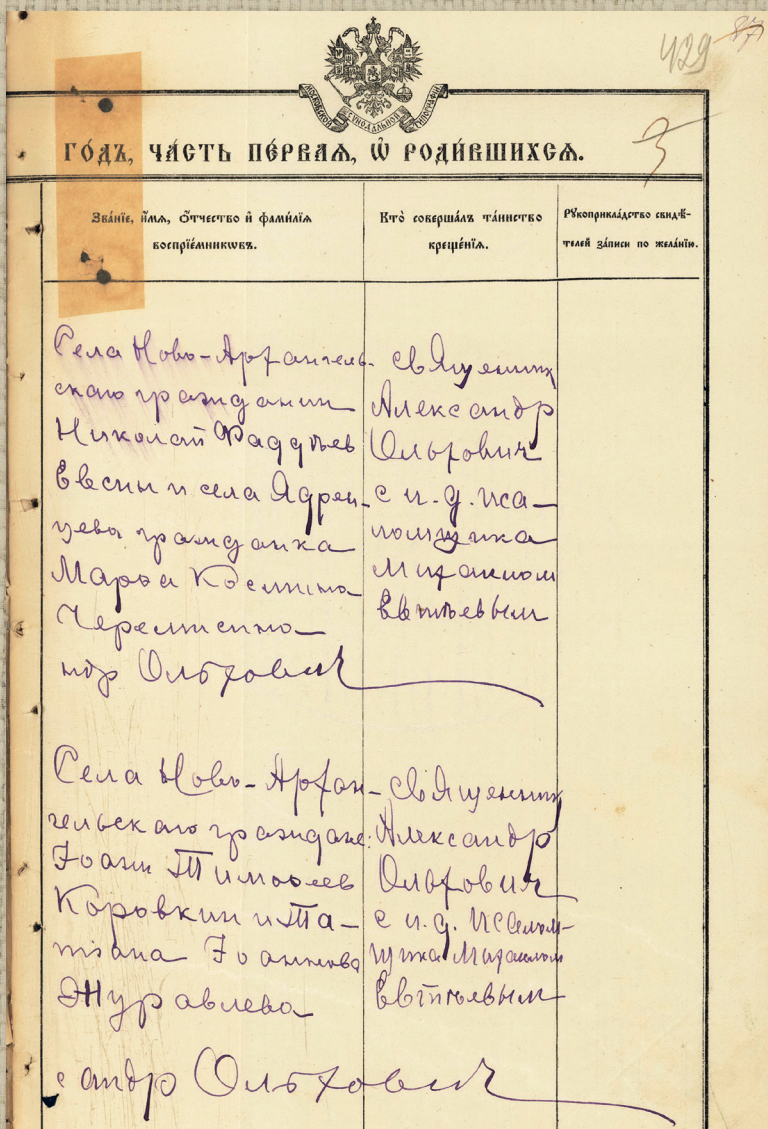 429 87
МОСКОВСКОЙ СѴНОДАЛЬНОЙ ТИПОГРАФІИ
3
ГО́ДЪ, ЧА́СТЬ ПЕ́РВАЯ, Ѽ РОДИ́ВШИХСЯ.
Зва́нїе, и́мя, ѻ҆́тчество и҆ фами́лїя
воспрїе́мникωвъ.
Кто̀ соверша́лъ та́инство
креще́нїя.
Рꙋкоприкла́дство свидѣ́-
телей за́писи по жела́нїю.
Села Ново-Архангель-
скаго гражданин
Николай Фаддѣев
Евсин и села Ядрен-
цева гражданка
Марѳа Космина
Черемисина
ндр Ольхович
Священник
Александр
Ольхович
с и. д. пса-
ломщика
Михаилом
Евтѣевым
Села Ново-Архан-
гельскаго граждане:
Іоанн Тимоѳеев
Коровкин и Та-
тіана Іоаннова
Журавлева
сандр Ольхович
Священник
Александр
Ольхович
с и. д. псалом-
щика Михаилом
Евтѣевым